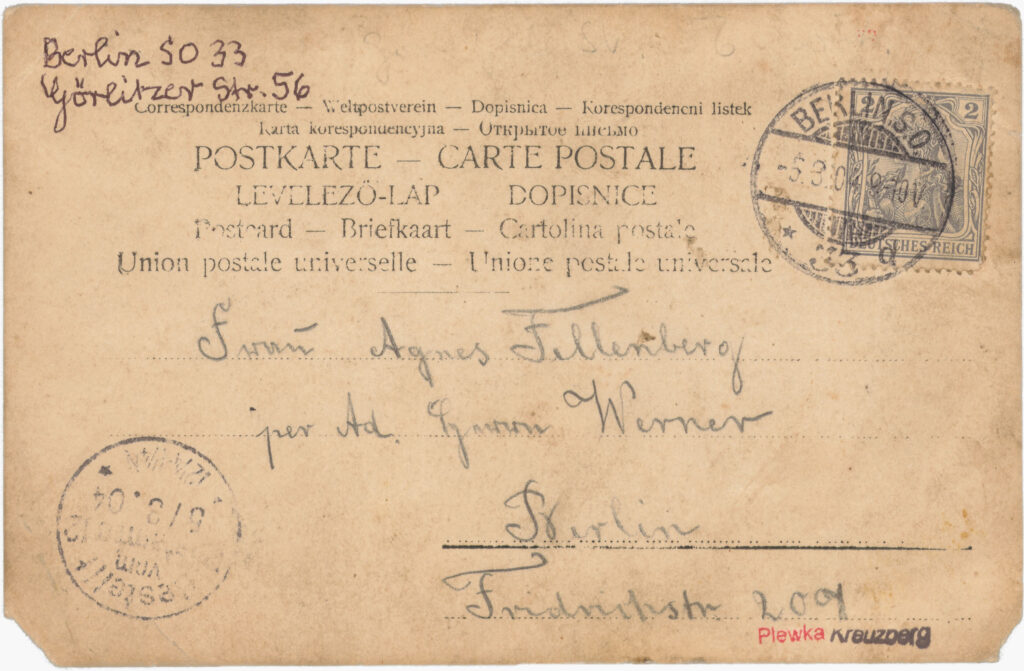 Berlin SO 33
Görlitzer Str. 56
Correspondenzkarte — Weltpostverein — Dopisnica — Korespondencni listek
Karta korespondencyjna — Открытое письмо
POSTKARTE — CARTE POSTALE
LEVELEZŐ-LAP DOPISNICE
Postcard — Briefkaart — Cartolina postale
Union postale universelle — Unione postale universale
BERLIN S.O.
33 d
2
DEUTSCHES REICH
Frau Agnes Fellenberg
per Ad. Herrn Werner
Berlin
Friedrichstr. 209
Bestellt
vom
Postamte
3.04
Plewka Kreuzberg